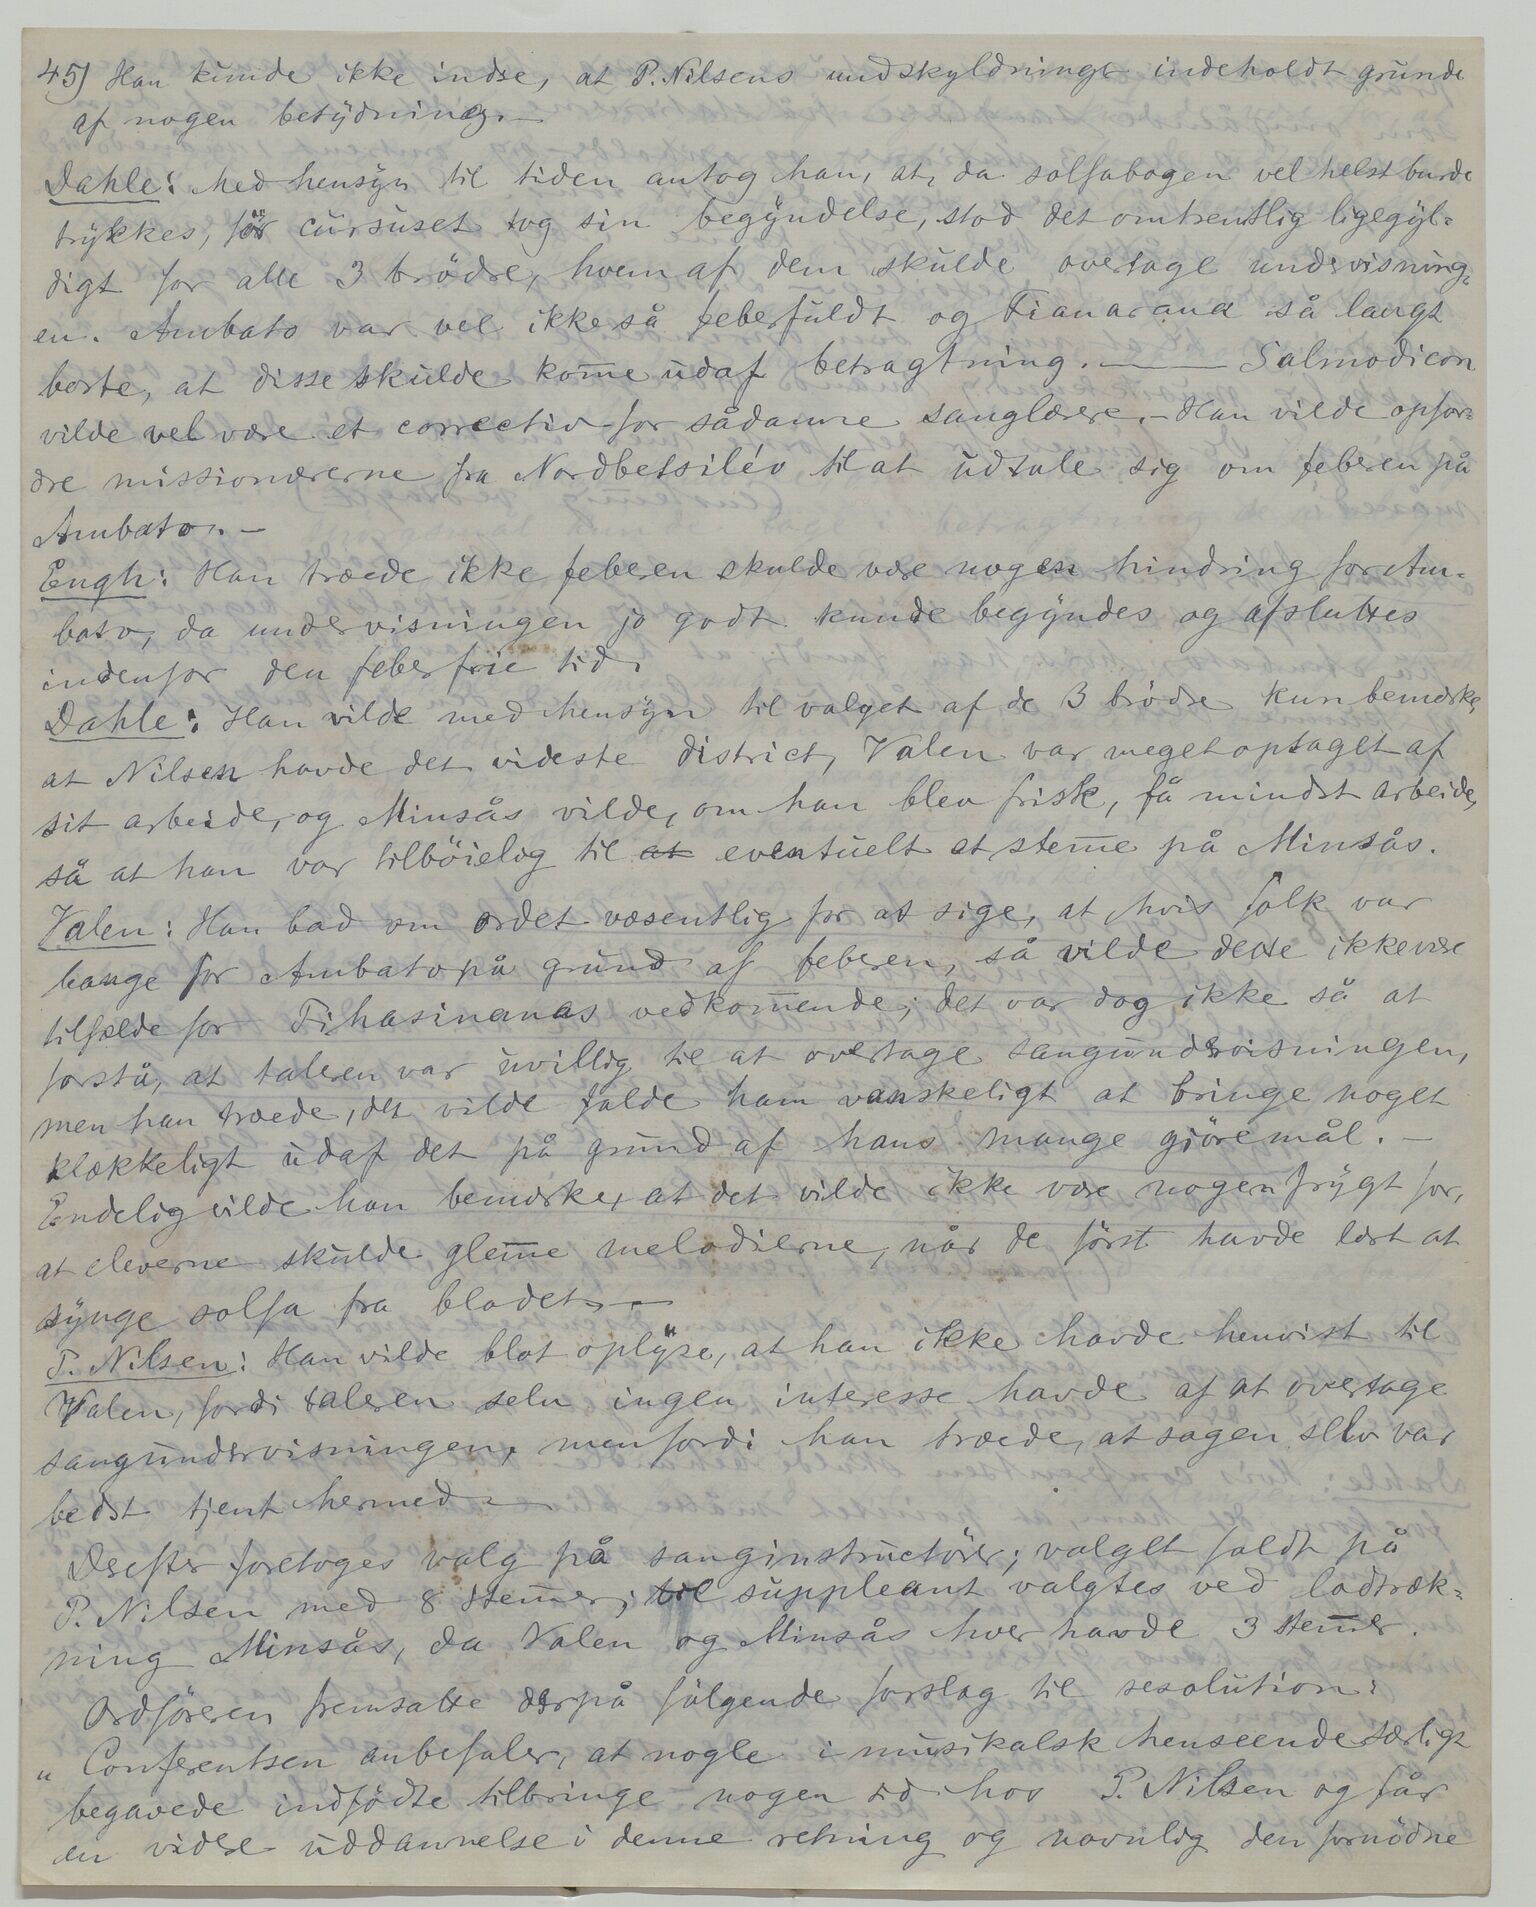 45) Han kunde ikke indse, at P. Nilsens undskyldninger indeholdt grunde
af nogen betydning. —
Dahle: Med hensyn til tiden antog han, at, da solfabogen vel helst burde
trykkes, før cursuset tog sin begyndelse, stod det omtrentlig ligegyl-
digt for alle 3 brödre, hvem af dem skulde overtage undervisning-
en. Ambato var vel ikke så feberfuldt og Fianarana så langt
borte, at disse skulde kom̄e udaf betragtning. — Salmodicon
vilde vel være et correctiv for sådanne sanglærere. — Han vilde opfor-
dre missionærerne fra Nordbetsiléo til at udtale sig om feberen på
Ambato. —
Engh: Han troede ikke feberen skulde være nogen hindring for Am-
bato, da undervisningen jo godt kunde begyndes og afsluttes
indenfor den feberfrie tid.
Dahle: Han vilde med hensyn til valget af de 3 brödre kun bemærke,
at Nilsen havde det videste district, Valen var meget optaget af
sit arbeide, og Minsås vilde, om han blev frisk, få mindst arbeide,
så at han var tilböielig til at eventuelt at stem̄e på Minsås.
Valen: Han bad om ordet væsentlig for at sige, at hvis folk var
bange for Ambato på grund af feberen, så vilde dette ikke være
tilfælde for Fihasinanas vedkom̄ende; det var dog ikke så at
forstå, at taleren var uvillig til at overtage sangundervisningen,
men han troede, det vilde falde ham vanskeligt at bringe noget
klækkeligt udaf det på grund af hans mange gjöremål. —
Endelig vilde han bemærke, at det vilde ikke være nogen frygt for,
at eleverne skulde glem̄e melodierne, når de först havde lært at
synge solfa fra bladet. —
P. Nilsen: Han vilde blot oplyse, at han ikke havde henvist til
Valen, fordi taleren selv ingen interesse havde af at overtage
sangundervisningen, men fordi han troede, at sagen selv var
bedst tjent hermed —
Derefter foretoges valg på sanginstructörer; valget faldt på
P. Nilsen med 8 stem̄er; til suppleant valgtes ved lodtræk-
ning Minsås, da Valen og Minsås hver havde 3 stem̄er.
Ordföreren fremsatte derpå fölgende forslag til resolution:
„Conferentsen anbefaler, at nogle i musikalsk henseende særligt
begavede indfödte tilbringe nogen tid hos P. Nilsen og får
en videre uddannelse i denne retning og navnlig den fornödne